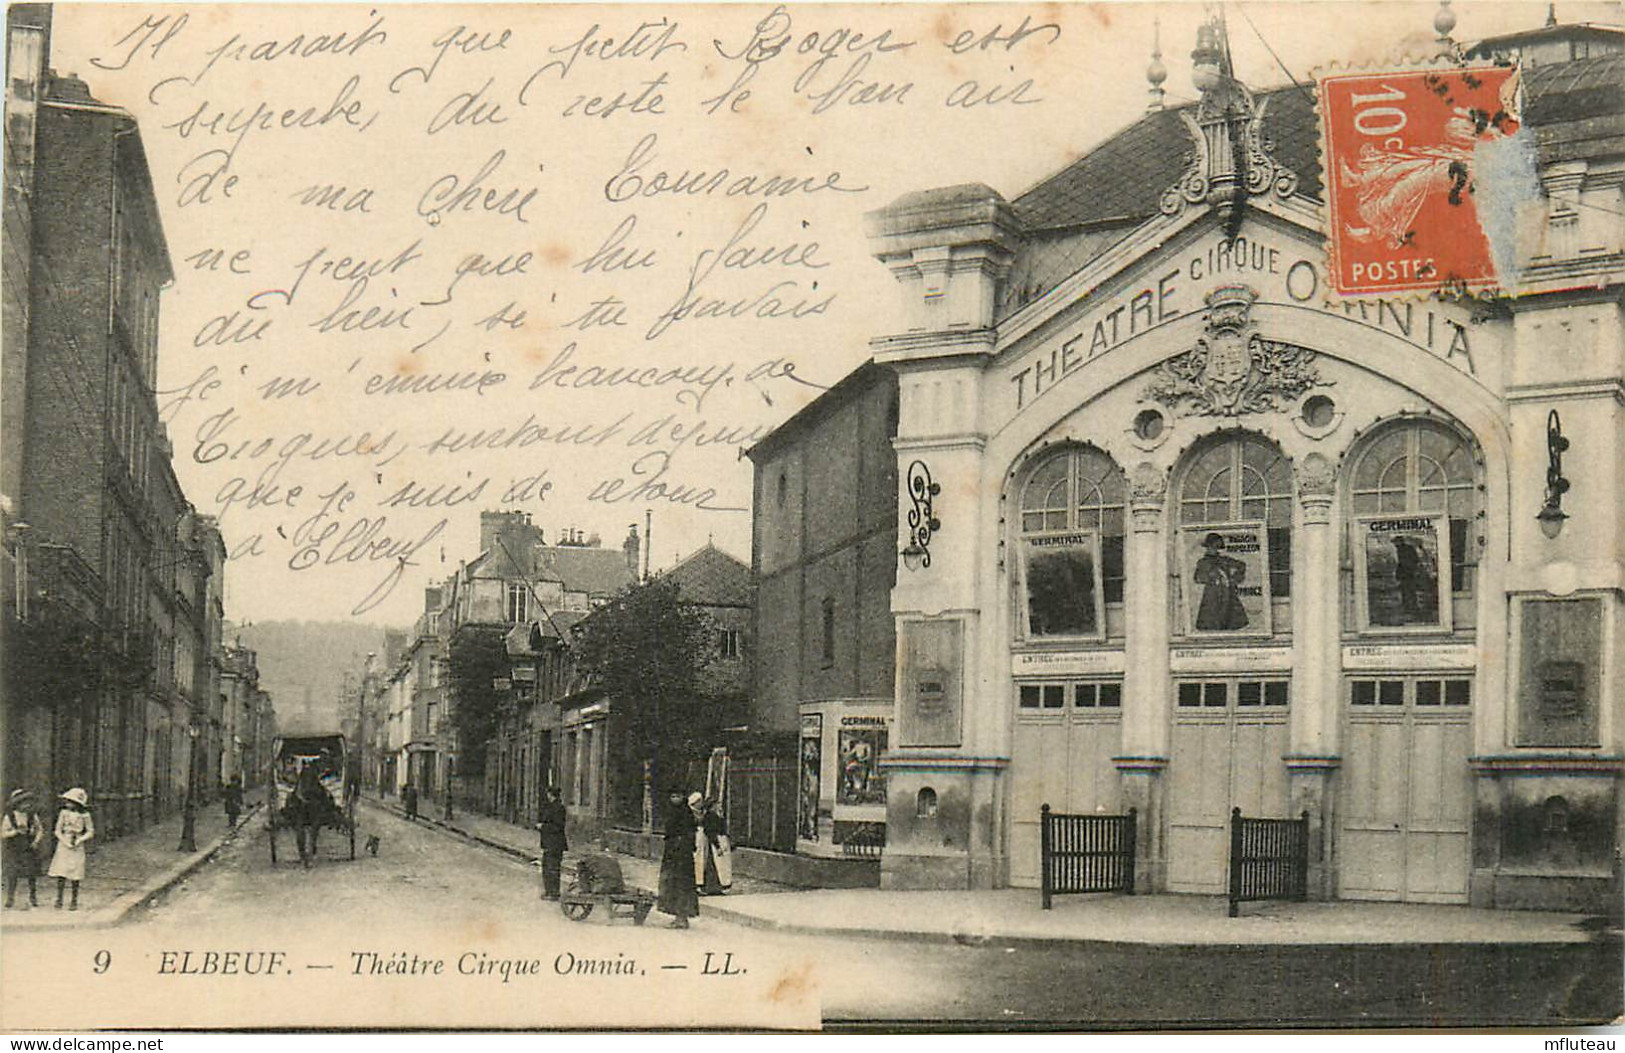 Il parait que petit Roger est
superbe, du reste le bon air
de ma chere Touraine
ne peut que lui faire
du bien, si tu savais
je m'ennuie beaucoup de
Troques, surtout depuis
que je suis de retour
à Elbeuf
10c
POSTES
THEATRE CIRQUE OMNIA
GERMINAL
GERMINAL
ENTRÉE
ENTRÉE
ENTRÉE
GERMINAL
9 ELBEUF. — Théâtre Cirque Omnia. — LL.
mfluteau